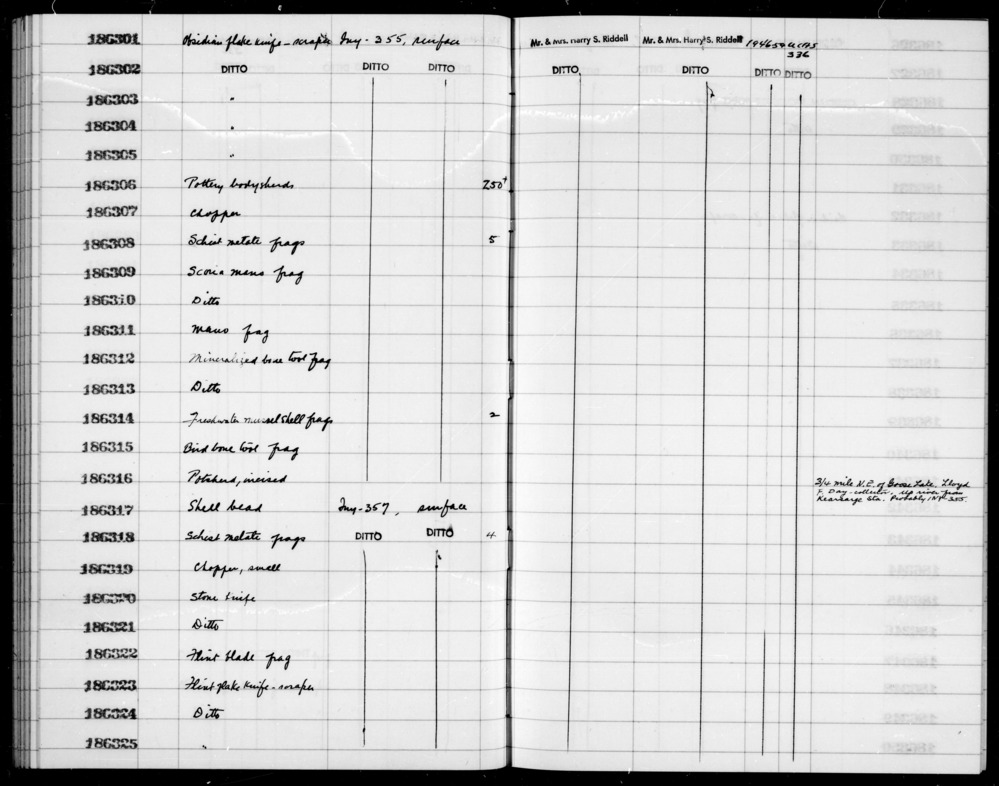 186301 Obsidian flake knife-scraper Iny-355, surface Mr. & Mrs. Harry S. Riddell Mr. & Mrs. Harry S. Riddell 1946-50 UCAS
336
186302 DITTO DITTO DITTO DITTO DITTO DITTO DITTO
186303 "
186304 "
186305 "
186306 Pottery bodysherds 250+
186307 Chopper
186308 Schist metate frags 5
186309 Scoria mano frag
186310 Ditto
186311 Mano frag
186312 Mineralized bone tool frag
186313 Ditto
186314 Freshwater mussel shell frags 2
186315 Bird bone tool frag
186316 Potsherd, incised 3/4 mile N.E. of Goose Lake. Lloyd
F. Day - collector, up river from
Kearsarge Sta. Probably INY-355.
186317 Shell bead Iny-357, surface
186318 Schist metate frags DITTO DITTO 4
186319 Chopper, small
186320 Stone knife
186321 Ditto
186322 Flint blade frag
186323 Flint flake knife-scraper
186324 Ditto
186325 "